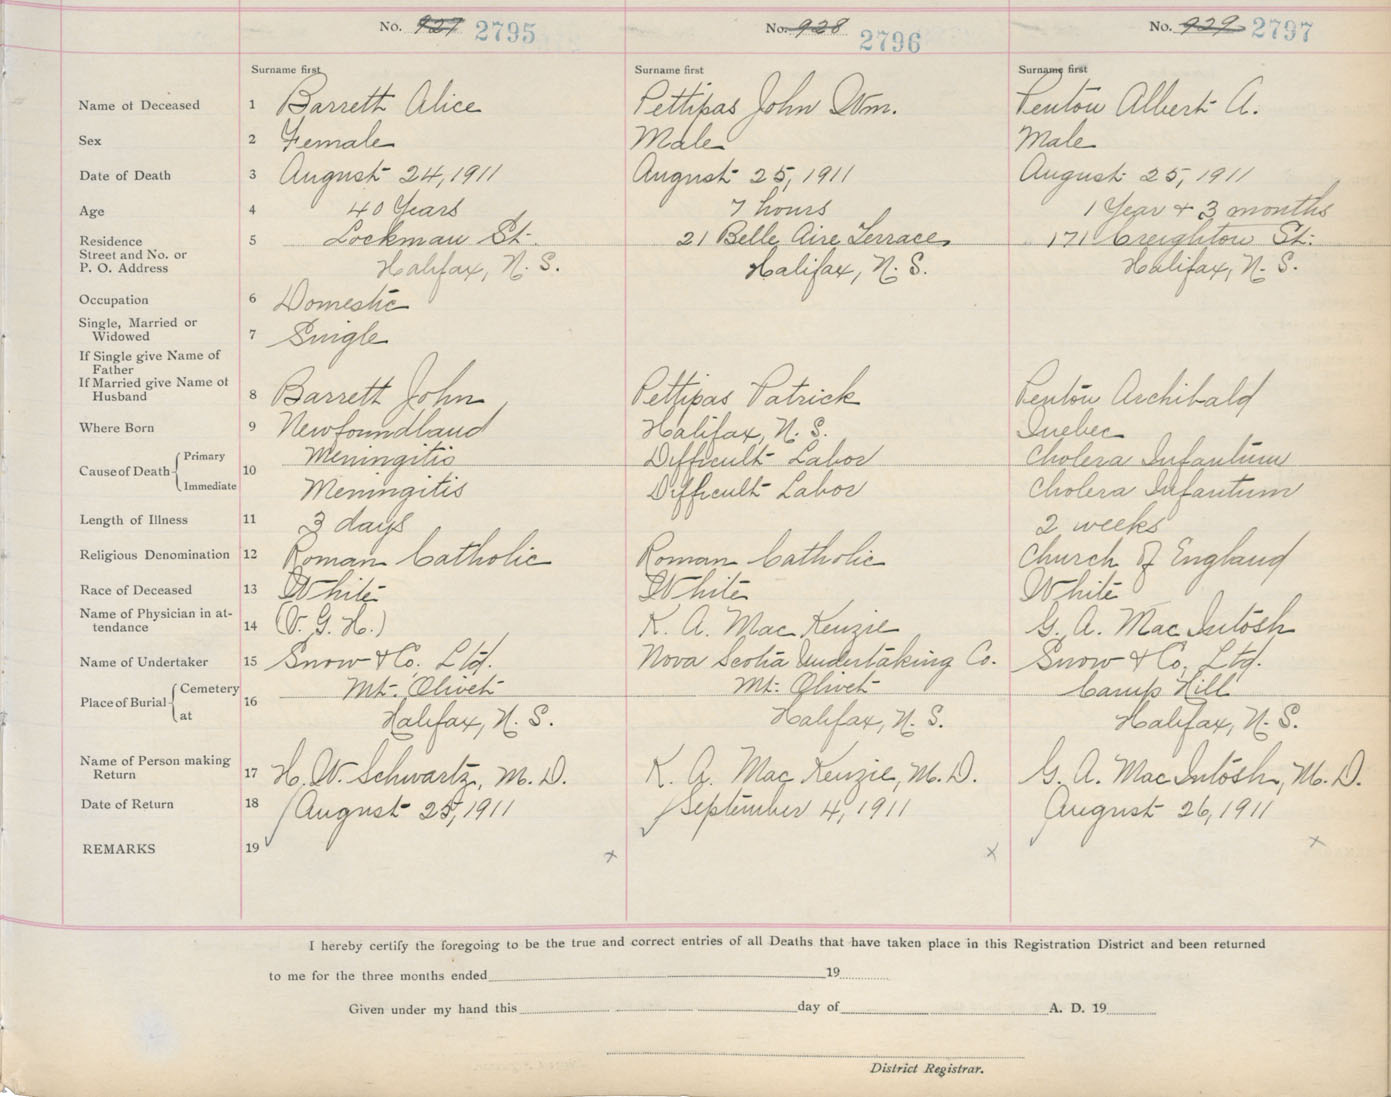 No. 927 2795 No. 928 2796 No. 929 2797
Surname first Surname first Surname first
Name of Deceased 1 Barrett Alice Pettipas John Wm. Penton Albert A.
Sex 2 Female Male Male
Date of Death 3 August 24, 1911 August 25, 1911 August 25, 1911
Age 4 40 Years 7 hours 1 Year & 3 months
Residence 5 Lockman St. 21 Belle Aire Terrace, 171 Creighton St.
Street and No. or
P. O. Address Halifax, N. S. Halifax, N. S. Halifax, N. S.
Occupation 6 Domestic
Single, Married or
Widowed 7 Single
If Single give Name of
Father
If Married give Name of
Husband 8 Barrett John Pettipas Patrick Penton Archibald
Where Born 9 Newfoundland Halifax, N. S. Quebec
Cause of Death 10 Primary Meningitis Difficult Labor Cholera Infantum
Immediate Meningitis Difficult Labor Cholera Infantum
Length of Illness 11 3 days 2 weeks
Religious Denomination 12 Roman Catholic Roman Catholic Church of England
Race of Deceased 13 White White White
Name of Physician in at-
tendance 14 (V. G. H.) K. A. MacKenzie G. A. MacIntosh
Name of Undertaker 15 Snow & Co. Ltd. Nova Scotia Undertaking Co. Snow & Co. Ltd.
Place of Burial 16 Cemetery Mt. Olivet Mt. Olivet Camp Hill
at Halifax, N. S. Halifax, N. S. Halifax, N. S.
Name of Person making
Return 17 H. W. Schwartz, M. D. K. A. MacKenzie, M. D. G. A. MacIntosh, M. D.
Date of Return 18 August 25, 1911 September 4, 1911 August 26, 1911
REMARKS 19 x x x
I hereby certify the foregoing to be the true and correct entries of all Deaths that have taken place in this Registration District and been returned
to me for the three months ended 19
Given under my hand this day of A. D. 19
District Registrar.